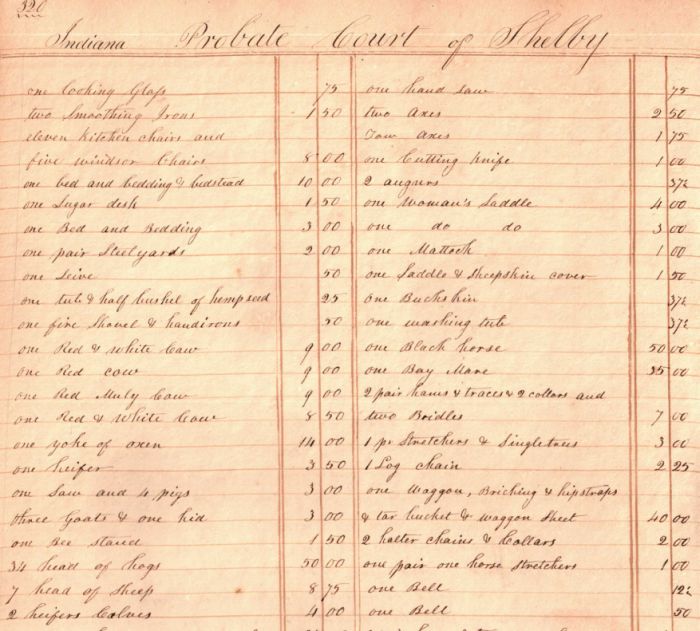 320
Indiana Probate Court of Shelby
one Looking Glass 75
two Smoothing Irons 1 50
eleven kitchen chairs and
five windsor Chairs 8 00
one bed and bedding & bedstead 10 00
one Sugar desk 1 50
one Bed and Bedding 3 00
one pair Steelyards 2 00
one Seive 50
one tub & half bushel of hempseed 25
one fire Shovel & handirons 50
one Red & White Cow 9 00
one Red Cow 9 00
one Red Muly Cow 9 00
one Red & White Cow 8 50
one yoke of oxen 14 00
one heifer 3 50
one Saw and 4 pigs 3 00
three Goats & one kid 3 00
one Bee stand 1 50
34 head of hogs 50 00
7 head of Sheep 8 75
2 heifers Calves 4 00
one hand saw 75
two Axes 2 50
Axes 1 75
one Cutting knife 1 00
2 augurs 37½
one Woman's Saddle 4 00
one do do 3 00
one Mattock 1 00
one Saddle & Sheepskin cover 1 50
one Buckskin 37½
one washing tub 37½
one Black horse 50 00
one Bay Mare 35 00
2 pair hams & traces & 2 collars and
two Bridles 7 00
1 pr Stretchers & Singletrees 3 00
1 Log chain 2 25
one Waggon, Briching & hipstraps
& tar bucket & waggon Sheet 40 00
2 halter chains & Collars 2 00
one pair one horse stretchers 1 00
one Bell 12½
one Bell 50